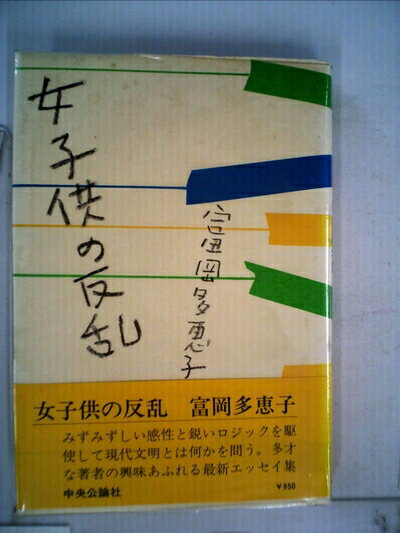 女子供の反乱
富岡多恵子
女子供の反乱　富岡多恵子
みずみずしい感性と鋭いロジックを駆
使して現代文明とは何かを問う。多才
な著者の興味あふれる最新エッセイ集
中央公論社
￥950